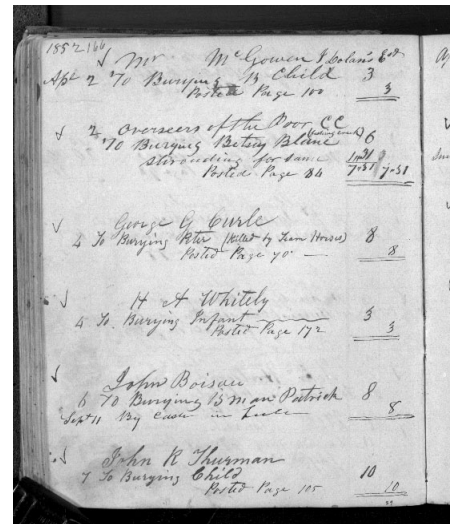 1852 166
Mr McGowen J Dolan's Est
Apl 2 To Burying B Child 3
Posted Page 100 3
2 Overseers of the Poor CC
To Burying Betsy Blane 6
shrouding for same 1.51
Posted Page 84 7.51 7.51
George G Curle
4 To Burying (Killed by Team Horses) 8
Posted Page 70 8
H A Whitely
4 To Burying Infant 3
Posted Page 172 3
John Boisau
6 To Burying B Man Patrick 8
Sept 11 By Cash in full 8
John R Thurman
7 To Burying Child 10
Posted Page 105 10